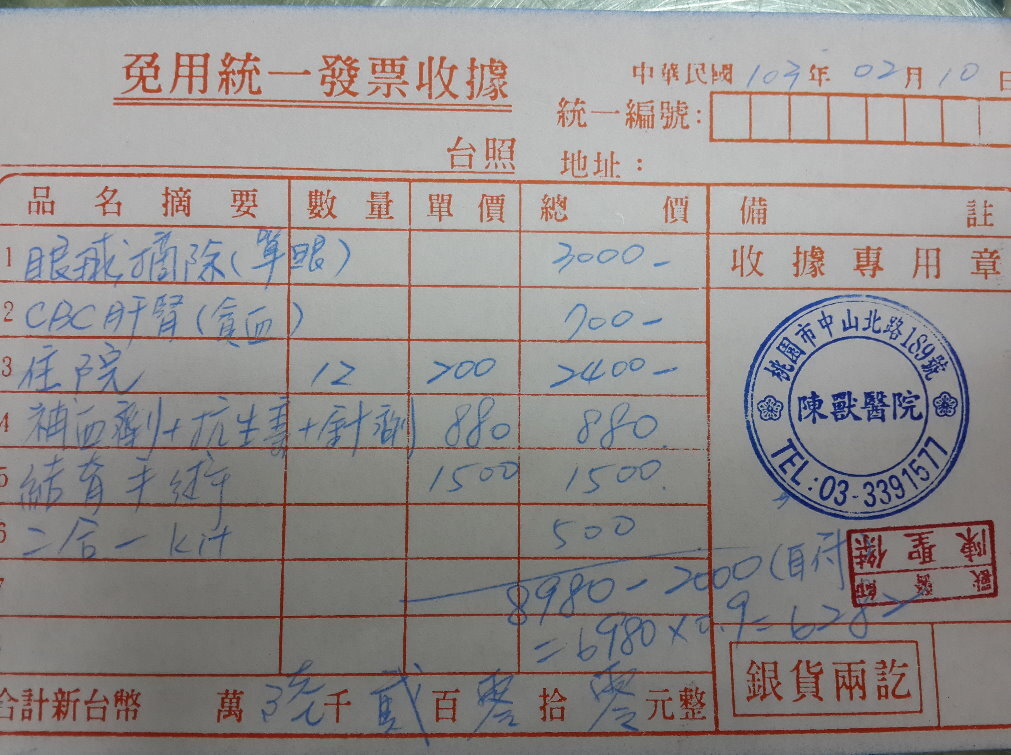 免用統一發票收據
中華民國 103 年 02 月 10 日
統一編號:
台照 地址:
品名摘要 數量 單價 總價 備註
1 眼球摘除(單眼) 3000-
收據專用章
2 CBC肝腎(貧血) 700-
3 住院 12 200 2400-
4 補血劑+抗生素+針劑 880 880
5 結育手術 1500 1500
6 二合一 kit 500
桃園市中山北路189號
陳獸醫院
TEL:03-3391577
陳聖傑
獸醫師
7 8980-2000(自付
=6980×0.9=6282
合計新台幣 萬 陸 千 貳 百 零 拾 零 元整
銀貨兩訖